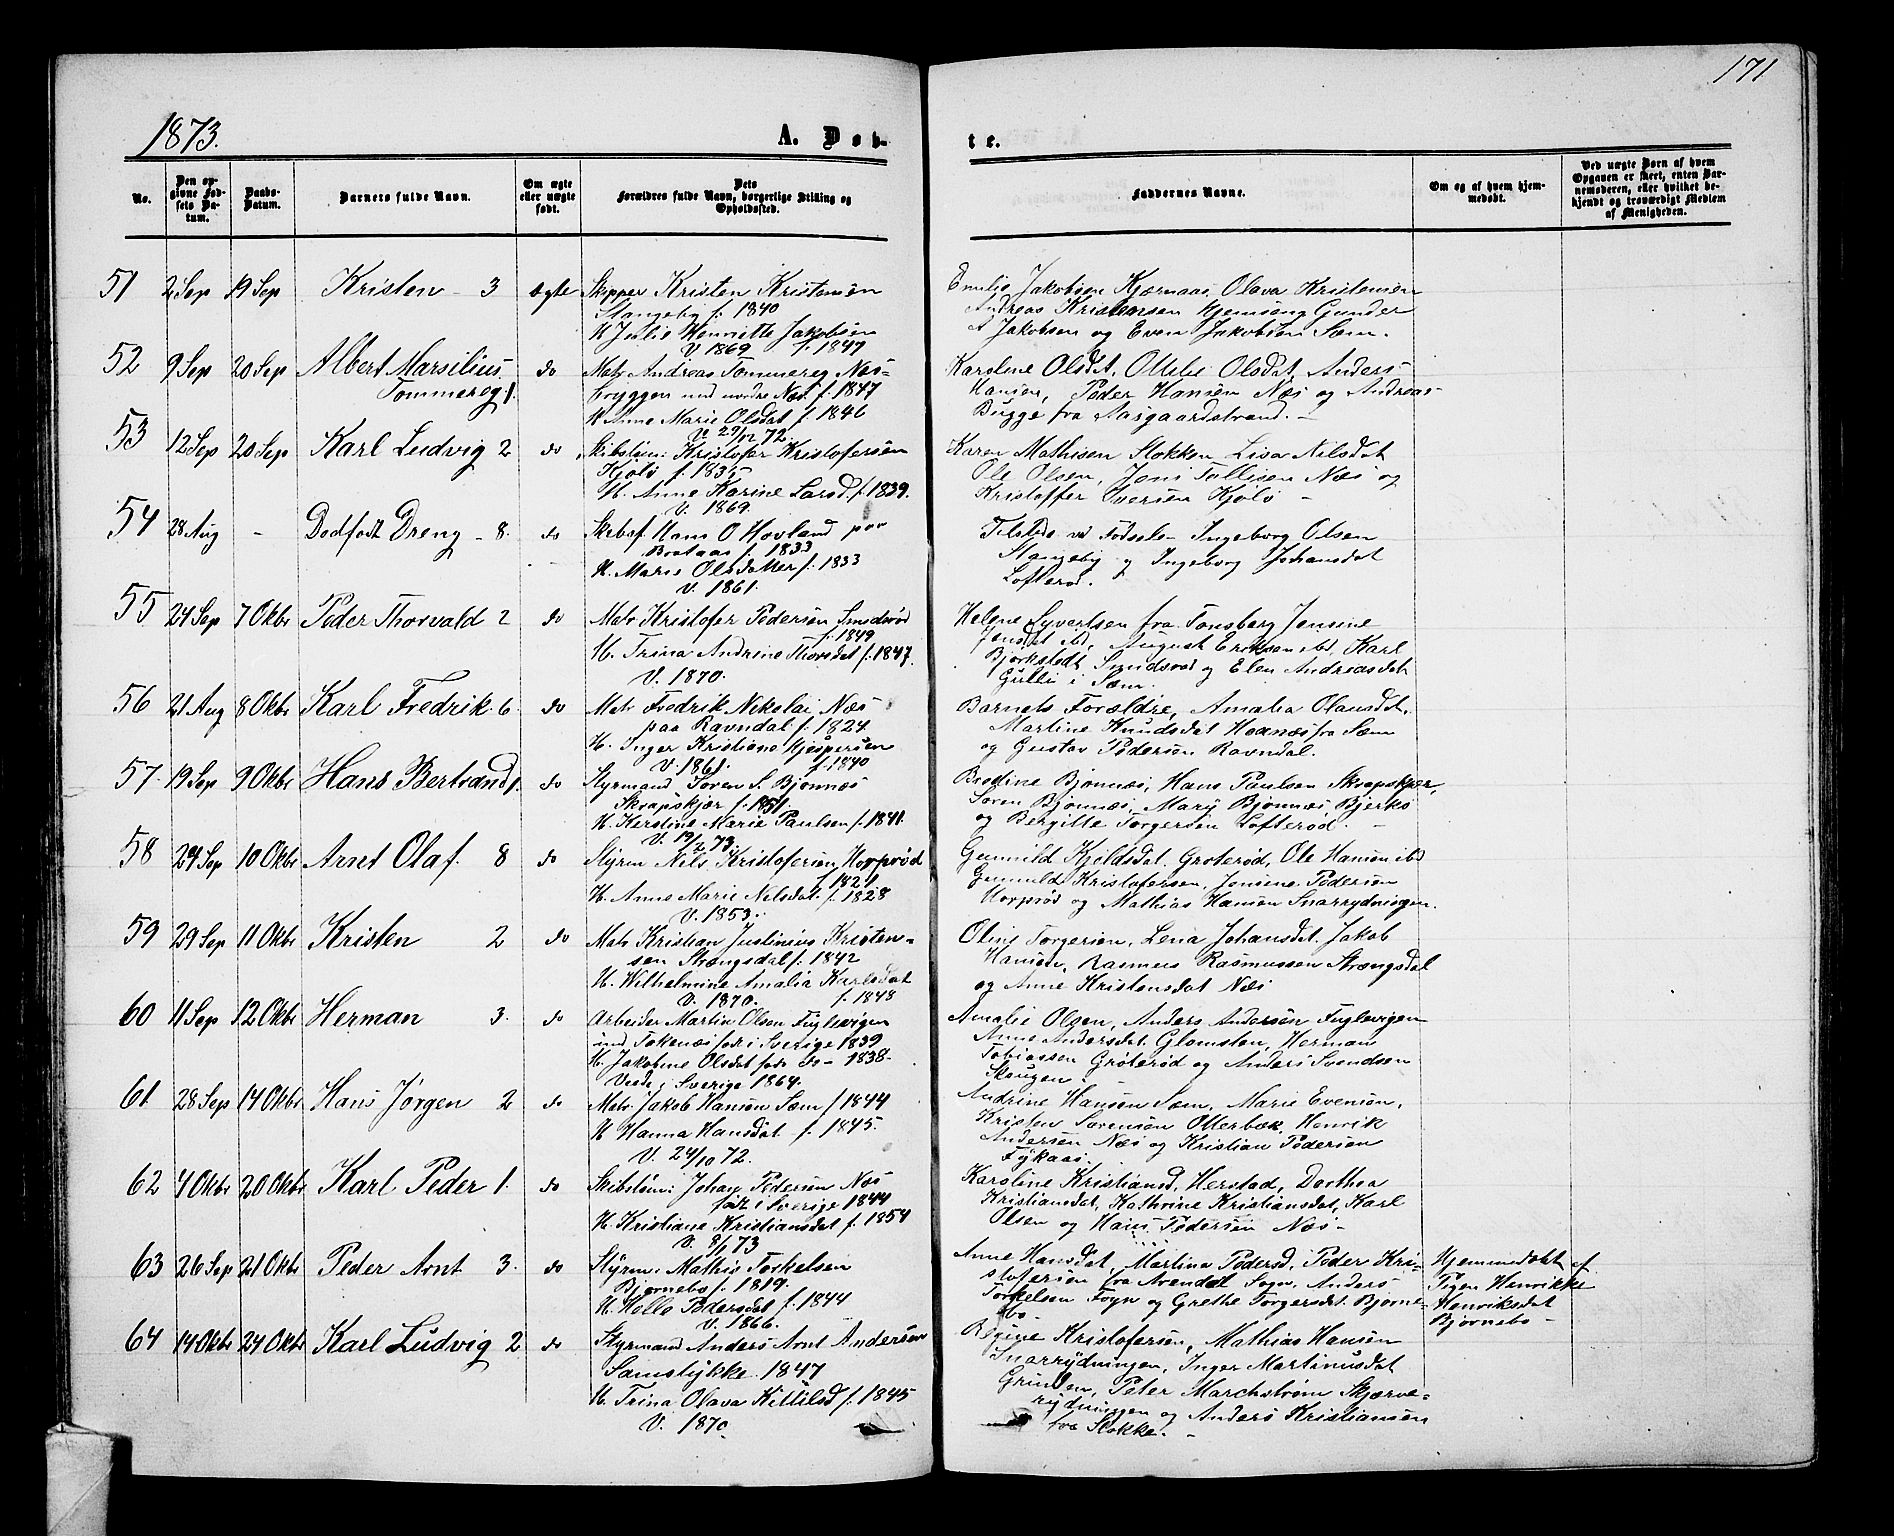 171
1873.
A. Døb-
te.
No.
Den op-
givne Fød-
sels Da-
tum.
Daabs-
Datum.
Barnets fulde Navn.
Om ægte
eller uægte
født.
Dets
Forældres fulde Navn, borgerlige Stilling og
Opholdssted.
Faddernes Navne.
Om og af hvem hjem-
medøbt.
Ved uægte Børn af hvem
Opgaven er skeet, enten Bar-
nemoderen, eller hvilket be-
kjendt og troværdigt Medlem
af Menigheden.
51 2 Sep 19 Sep Kristen - 3 ægte Skipper Kristen Kristensen
Stangeby f. 1840
H Julie Henriette Jakobsen
V 1869 f. 1847
Emilie Jakobsen Kjærnaas, Olava Kristensen
Andreas Kristensen Hjemseng Gunder
A Jakobsen og Even Jakobsen Sæm.
52 9 Sep 20 Sep Albert Marsilius do Matr Andreas Tommereg Næs-
Tommereg 1. bryggen und nordre Næs f. 1847
H Anne Marie Olsdat f. 1846
V. 29/12 72.
Karoline Olsdt, Ottilie Olsdat, Anders
Hansen, Peder Hansen Næs og Andreas
Bugge fra Aasgaardstrand. -
53 12 Sep 20 Sep Karl Ludvig 2 do Skibstøm: Kristofer Kristofersen
Kjølø f. 1835
H. Anne Karine Larsd f. 1839.
V. 1869.
Karen Mathisen Stokken, Lisa Nilsdat
Ole Olsen, Jens Tollisen Næs og
Kristoffer Iversen Kjølø -
54 28 Aug - Dødfødt Dreng - 8. do Skibsf Hans O Hovland paa
Brataas f. 1833
H. Marie Olsdatter f. 1833
V. 1861.
Tilstede ved Fødsele- Ingeborg Olsen
Stangeby og Ingeborg Johansdat
Lofterød.
55 24 Sep 7 Oktbr Peder Thorvald 2 do Matr Kristofer Pedersen Smidsrød
f. 1849
H. Trina Andrine Thorsdat f. 1847.
V. 1870.
Helene Syvertsen fra Tønsberg Jensine
Jensdt ibd, August Eriksen ibd, Karl
Bjørkstedt Smidsrød og Elen Andreasdat
Gulli i Sæm.
56 21 Aug 8 Oktbr Karl Fredrik. 6. do Matr Fredrik Nikolai Næs
paa Ravndal f. 1824
H. Inger Kristiane Kjespersen
V. 1861. f. 1840
Barnets Forældre, Amalia Olausdat,
Martine Knudsdat Hoanæs fra Sæm
og Gustav Pedersen Ravndal.
57. 19 Sep 9 Oktbr Hans Bertrand 1. do Styrmand Søren S. Bjønnæs
Skrapskjær f. 1851.
H. Kerstine Marie Paulsen f. 1841.
V. 19/2 73.
Bredine Bjønnæs, Hans Paulsen Skrapskjær,
Søren Bjønnæs, Mary Bjønnæs Bjerkø
og Bergitte Torgersen Lofterød. -
58 24 Sep 10 Oktbr Arnt Olaf. 8 do Styrm Nils Kristofersen Horprød
f. 1821
H. Anne Marie Nilsdat. f. 1828
V. 1853.
Gunnild Kjeldsdat. Grøterød, Ole Hansen ibd
Gunnild Kristofersen, Jensine Pedersen
Horprød og Mathias Hansen Snarrydningen.
59 29 Sep 11 Oktbr Kristen 2 do Matr Kristian Justinius Kristen-
sen Strængsdal f. 1842
H. Wilhelmine Amalia Karlsdat
V. 1870. f. 1848
Oline Torgersen, Lena Johansdat. Jakob
Hansen, Rasmus Rasmussen Strængsdal
og Anne Kristensdat Næs
60 11 Sep 12 Oktbr Herman 3. do Arbeider Martin Olsen Fuglevigen
und Jakenæs født i Sverige 1839
H. Jakobine Olsdat født do - 1838-
Viede i Sverige 1864.
Amalie Olsen, Anders Andersen Fuglevigen
Anne Andersdat. Glomsten, Herman
Tobiassen Grøterød og Anders Svendsen
Skougen.
61. 28 Sep 14 Oktbr Hans Jørgen 2 do Matr Jakob Hansen Sæm f 1844
H Hanna Hansdat f. 1845.
V. 24/10 72.
Andrine Hansen Sæm, Marie Evensen,
Kristen Sørensen Otterbæk, Henrik
Andersen Næs og Kristian Pedersen
Fykaas.
62 4 Oktbr 20 Oktbr Karl Peder 1. do Skibstøm: Johan Pedersen Næs
født i Sverige 1844
H. Kristiane Kristiansdat f. 1854
V. 8/1 73
Karoline Kristiansd, Herstad, Dorthea
Kristiansdat, Kathrine Kristiansdat, Karl
Olsen og Hans Pedersen Næs -
63 26 Sep 21 Oktbr Peder Arnt 3. do Styrm: Mathis Torkelsen
Bjørnebo f. 1819.
H. Helle Pedersdat f. 1844
V. 1866.
Anne Hansdat, Martina Pedersd, Peder Kri-
stofersen fra Arendal Sogn, Anders
Torkelsen Foyn og Grethe Torgersdat. Bjørne-
bo-
Hjemmedøbt af
Pigen Henrikke
Henriksdat
Bjørnebo -
64 14 Oktbr 24 Oktbr Karl Ludvig 2 do Styrmand Anders Arnt Andersen
Sæmstykke 1847
H. Trina Olava Kittilsd f. 1845
V. 1870.
Regine Kristofersen, Mathias Hansen
Snarrydningen, Inger Martinusdat
Grinden, Peter Marchstrøm Skjærve-
rydningen og Anders Kristiansen
fra Stokke. -